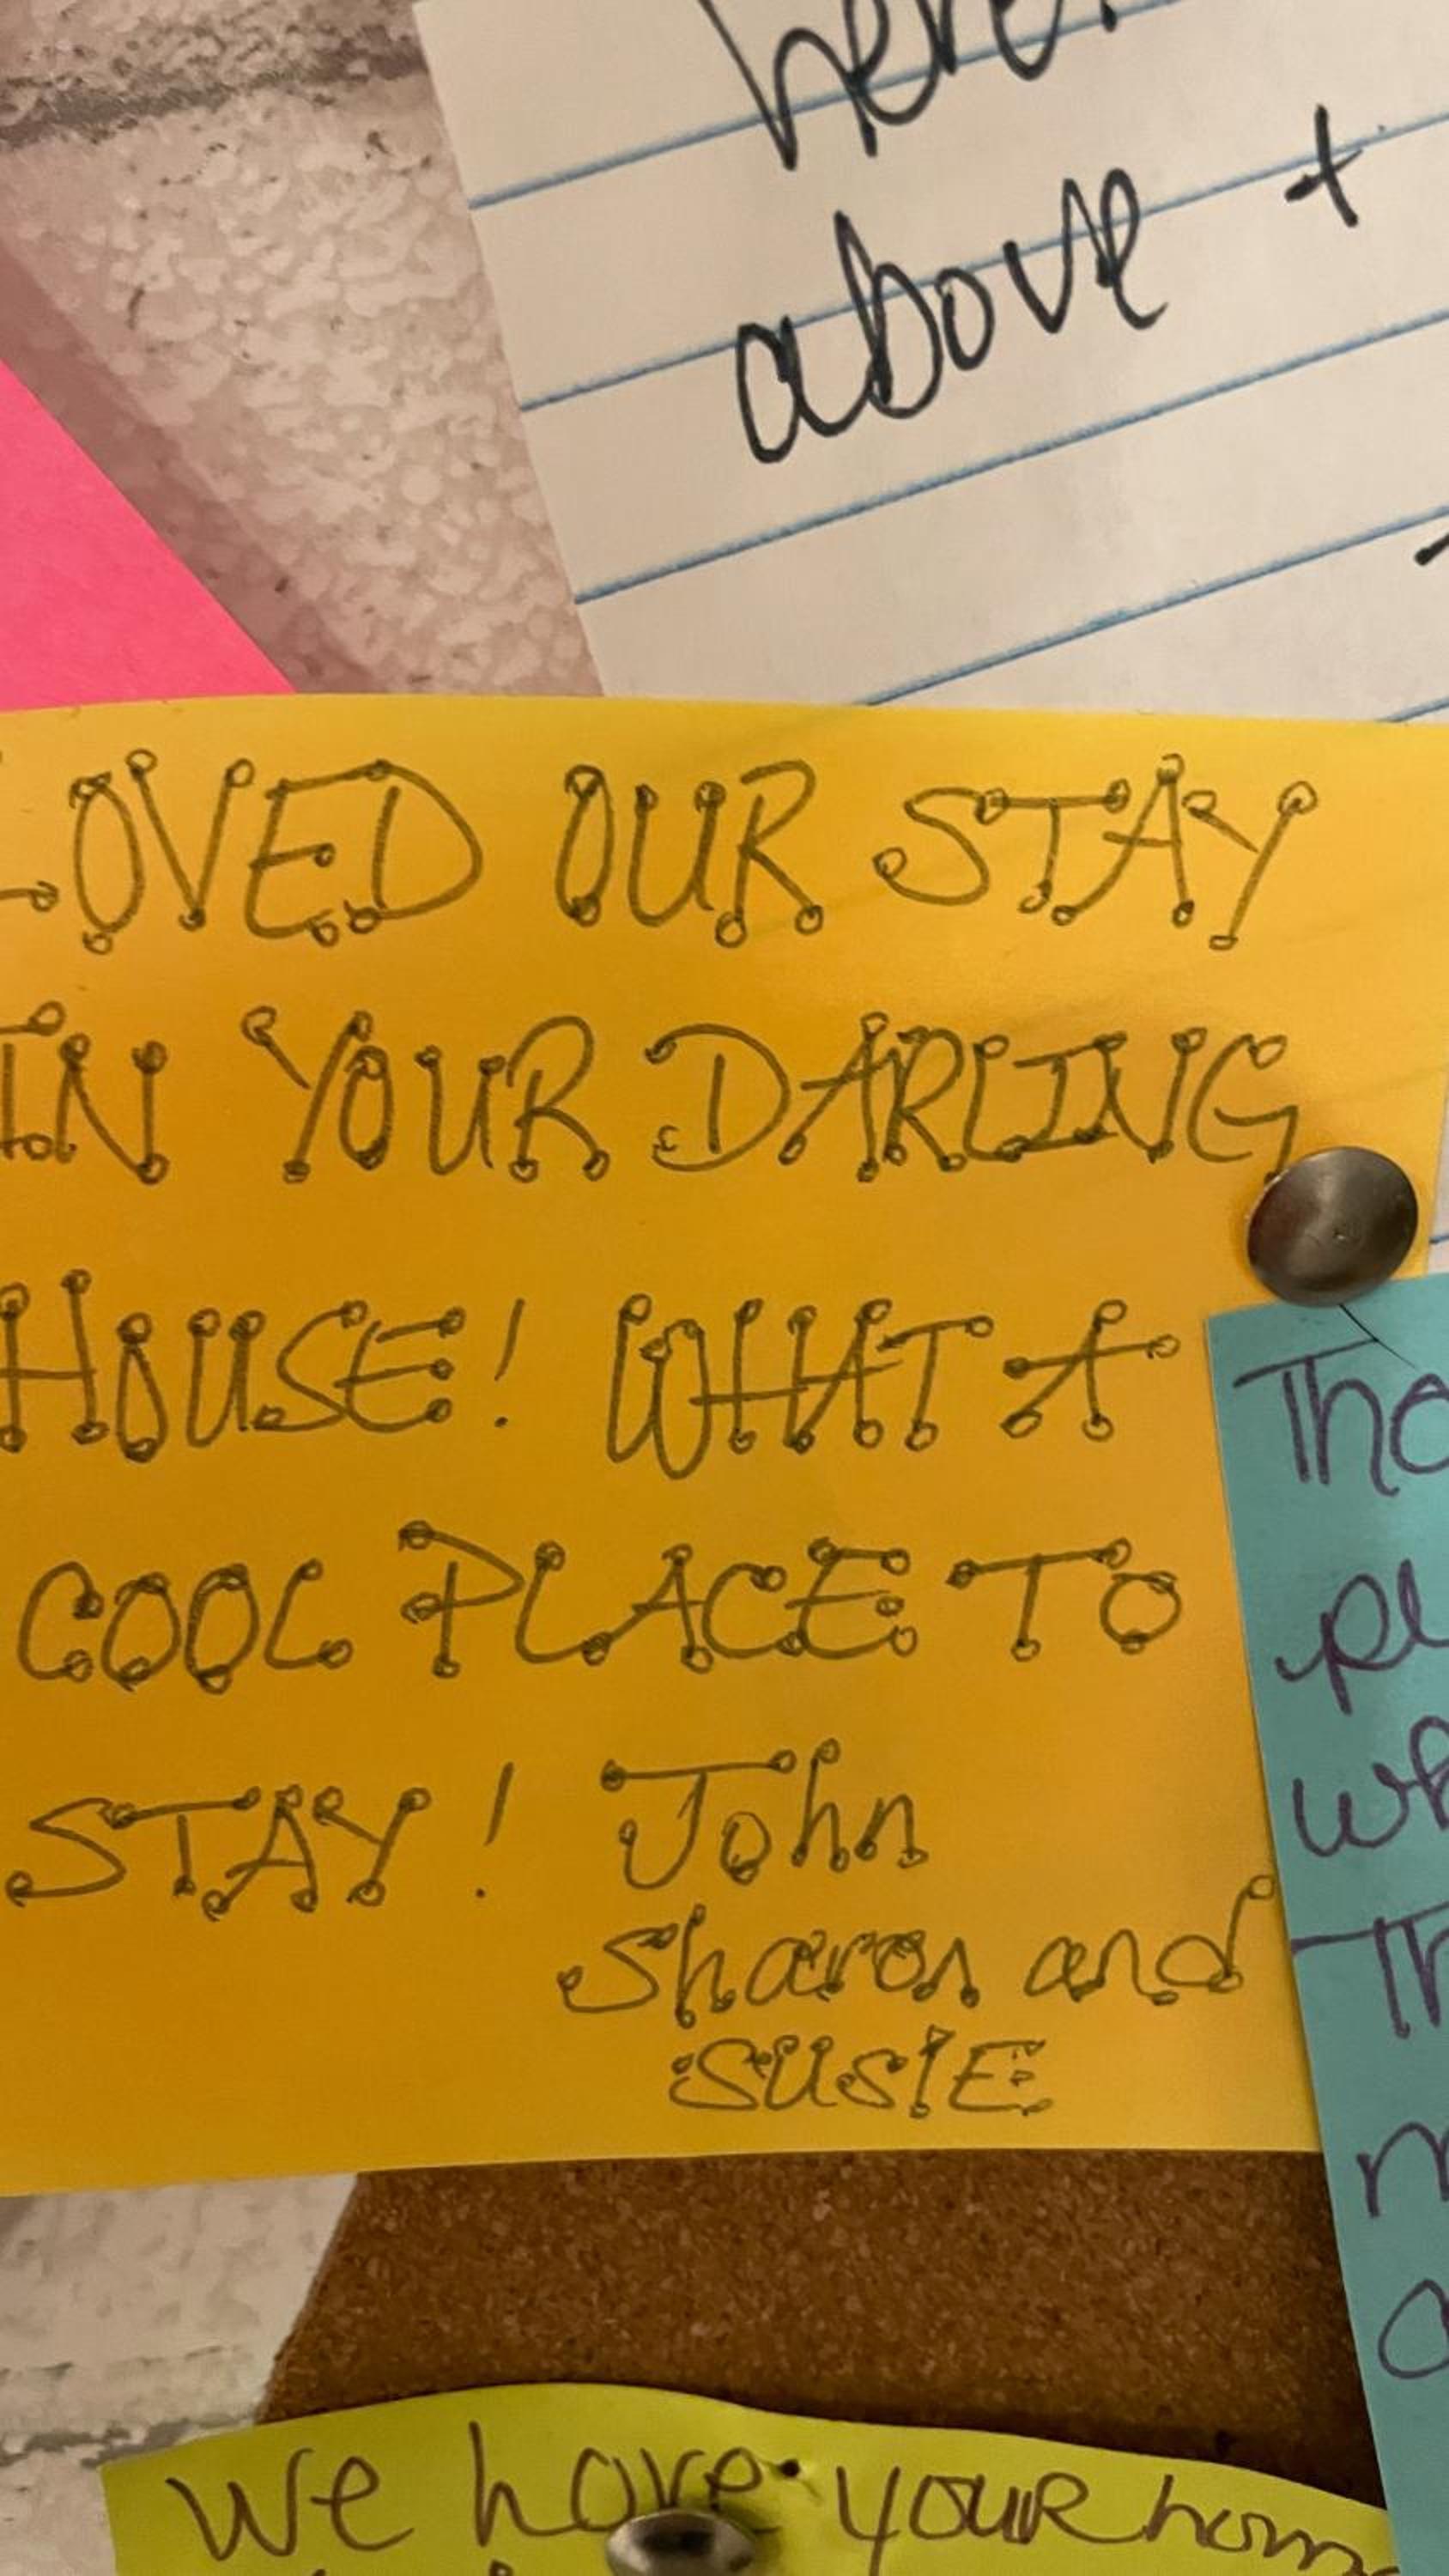 here.
above +
LOVED OUR STAY
IN YOUR DARLING
HOUSE! WHAT A
COOL PLACE TO
STAY! John
Sharon and
SUSIE
We have your hom